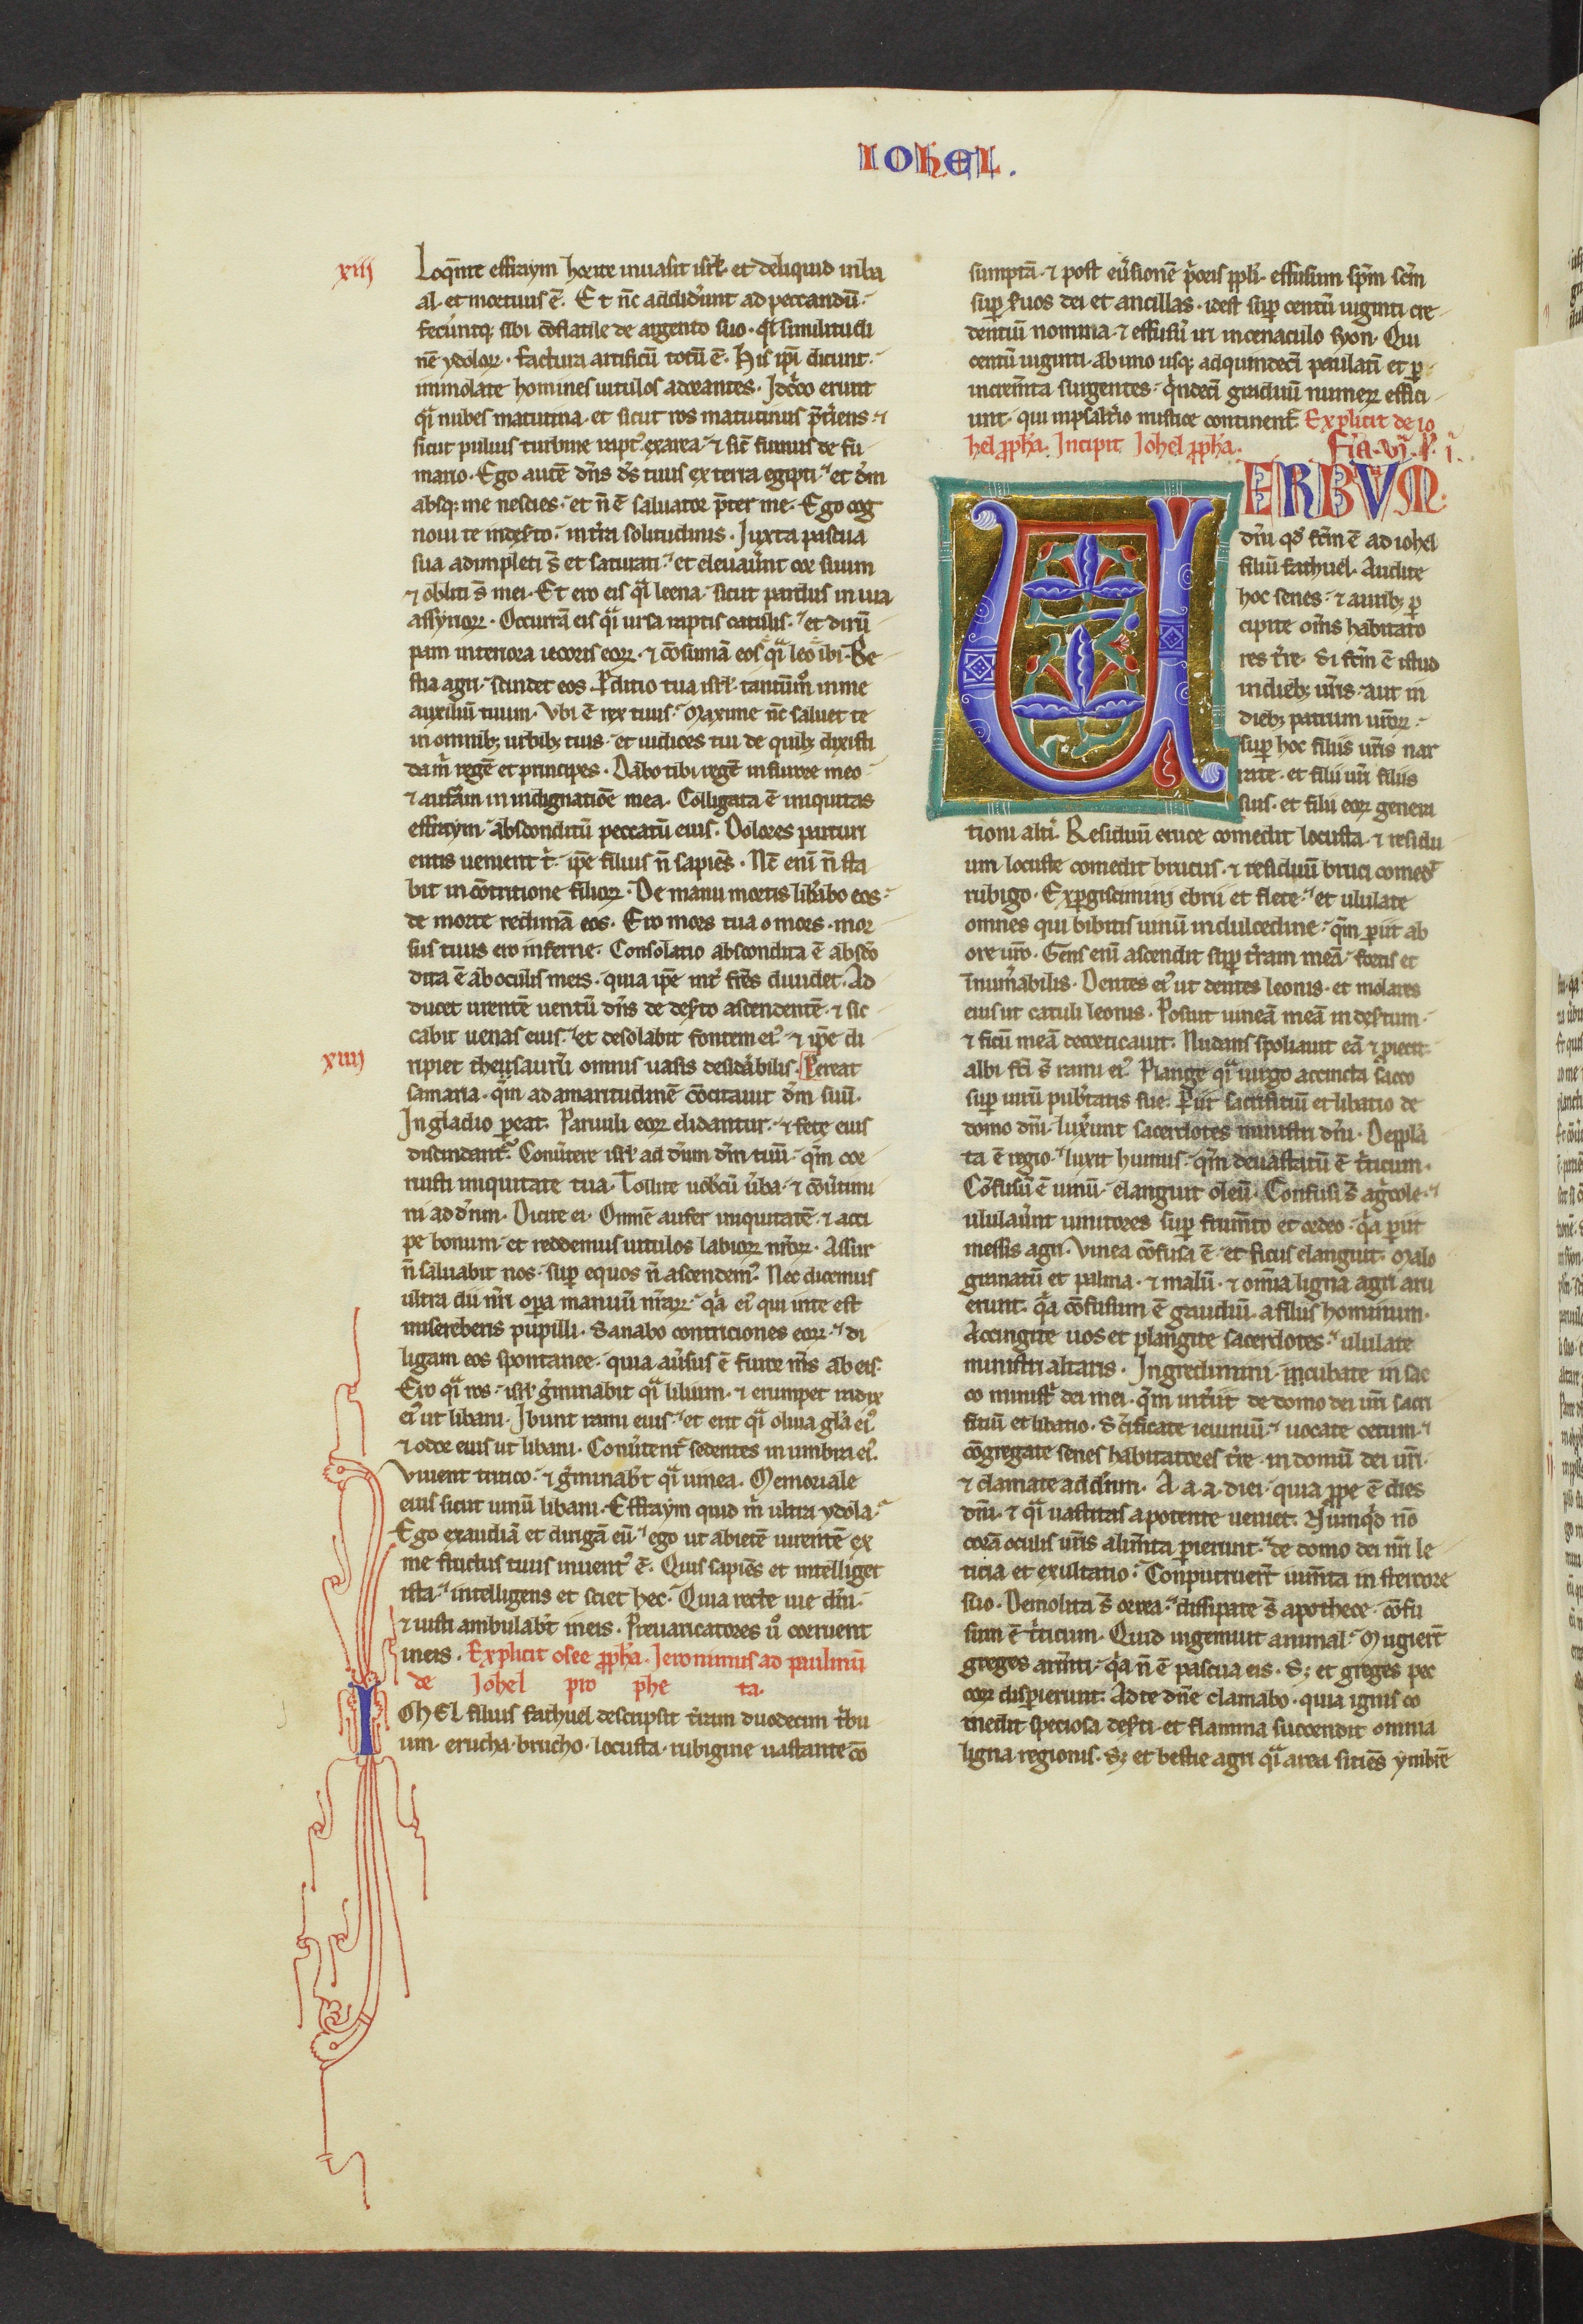 IOHEL.
xiii
Loq̄nte effraym horror inuasit isrl̄. et deliquid in ba
al. et mortuus ē. Et nc̄ addiderunt ad peccandū.
feceruntq; sibi cōflatile de argento suo. qͣsi similitudi
nē ydolor̄. factura artificū totū ē. His ipi dicunt.
immolate homines uitulos adorantes. Idcͦco erunt
qͣsi nubes matutina. et sicut ros matutinus p̄tiens. ⁊
sicut puluis turbine rapt᷒ ex area. ⁊ sic̄ fumus de fu
mario. Ego autē dn̄s ds̄ tuus ex terra egipti. et dm̄
absq; me nescies. et n̄ ē saluator p̄ter me. Ego cog
noui te in deserto. in t̄ra solitudinis. Iuxta pascua
sua adimpleti s̄ et saturati. et eleuauer̄nt cor suum
⁊ obliti s̄ mei. Et ero eis qͣsi leena. sicut pardus in uia
assyrior̄. Occurrā eis qͣsi ursa raptis catulis. et dirū
pam interiora iecoris eor̄. ⁊ cōsumā eos qͣsi leo ibi. Be
stia agri. scindet eos. P̄ditio tua isrl̄. tantūmͦ in me
auxiliū tuum. Vbi ē rex tuus. Maxime nc̄ saluet te
in omnib; urbib; tuis. et iudices tui de quib; dixisti
da m̄ regē et principes. Dabo tibi regē in furore meo
⁊ auferam in indignatiōe mea. Colligata ē iniquitas
effraym. absconditū peccatū eius. Dolores parturi
entis uenient ei. ip̄e filius n̄ sapiēs. Nc̄ enī n̄ sta
bit in cōtritione filior̄. De manu mortis liberabo eos.
de morte redimā eos. Ero mors tua o mors. mor
sus tuus ero inferne. Consolatio abscondita ē abscō
dita ē ab oculis meis. quia ip̄e int̄ fr̄es diuidet. Ad
ducet urentē uentū dn̄s de deserto ascendentē. ⁊ sic
cabit uenas eius. et desolabit fontem ei᷒. ⁊ ip̄e di
xiiii
ripiet thesaurū omnis uasis desiderabilis. Pereat
samaria. qm̄ ad amaritudinē cōcitauit dm̄ suū.
In gladio pereat. Paruuli eor̄ elidantur. ⁊ fete eius
discindant᷒. Conuertere isrl̄ ad dn̄m dm̄ tuū. qm̄ cor
ruisti iniquitate tua. Tollite uobcū uerba. ⁊ cōuertimi
ni ad dn̄m. Dicite ei. Omnē aufer iniquitatē. ⁊ acci
pe bonum. et reddemus uitulos labior̄ nr̄or̄. Assur
n̄ saluabit nos. sup equos n̄ ascendem᷒. Nec dicemus
ultra dii nr̄i opa manuū nr̄ar̄. qͣ ei᷒ qui in te est
misereberis pupilli. Sanabo contriciones eor̄. di
ligam eos spontanee. quia auersus ē furor m̄s ab eis.
Ero qͣsi ros. isrl̄ germinabit qͣsi lilium. ⁊ erumpet radix
ei᷒ ut libani. Ibunt rami eius. et erit qͣsi oliua gl̄a ei᷒
⁊ odor eius ut libani. Conuertent̄ sedentes in umbra ei᷒.
Viuent tritico. ⁊ germinabt̄ qͣsi uinea. Memoriale
eius sicut uinū libani. Effraym quid m̄ ultra ydola.
Ego exaudiā et dirigā eū. ego ut abietē uirentē ex
me fructus tuus inuent᷒ ē. Quis sapiēs et intelliget
ista. intelligens et sciet hec. Quia recte uie dn̄i.
⁊ iusti ambulabt̄ in eis. Preuaricatores uͦ corruent
in eis. Explicit osee ppha. Ieronimus ad paulinū
de Iohel pro phe ta.
IOHEL filius fathuel descripsit t̄ram duodecim tbu
um. erucha. brucho. locusta. rubigine uastante cō
sumptā. ⁊ post euersionē poris ppli. effusum spm̄ scm̄
sup seruos dei et ancillas. idest sup centū uiginti cre
dentiū nomina. ⁊ effusū in in cenaculo syon. Qui
centū uiginti. ab uno usq; ad quindecī paulatī et p
increm̄ta surgentes. qͥndecī graduū numerū effici
unt. qui in psalterio mistice continent̄. Explicit de io
hel ppha. Incipit Iohel ppha.
VERBVM
dn̄i qd̄ fcm̄ ē ad iohel
filiū fathuel. Audite
hoc senes. ⁊ aurib; p
cipite om̄s habitato
res t̄re. Si fcm̄ ē istud
in dieb; ur̄is. aut in
dieb; patrum ur̄or̄.
sup hoc filiis ur̄is nar
rate. et filii ur̄i filiis
suis. et filii eor̄ genera
tioni alti. Residuū eruce comedit locusta. ⁊ residu
um locuste comedit brucus. ⁊ residuū bruci comed᷒
rubigo. Expgiscimini ebrii et flete. et ululate
omnes qui bibitis uinū in dulcedine. qm̄ piit ab
ore ur̄o. Gens enī ascendit sup t̄ram meā. fortis et
innumabilis. Dentes ei᷒ ut dentes leonis. et molares
eius ut catuli leonis. Posuit uineā meā in desertum.
⁊ ficū meā decorticauit. Nudans spoliauit eā ⁊ piecit.
albi fcī s̄ rami ei᷒. Plange qͣsi uirgo accincta sacco
sup uirū pubertatis sue. Piit sacrificiū et libatio de
domo dn̄i. luxerunt sacerdotes ministri dn̄i. Deppla
ta ē regio. luxit humus. qm̄ deuastatū ē triticum.
Cōfusū ē uinū. elanguit oleū. Confusi s̄ agͥcole. ⁊
ululauer̄nt uinitores sup frumento et ordeo. qͣ piit
messis agri. Vinea cōfusa ē. et ficus elanguit. Malo
granatū et palma. ⁊ malū. ⁊ om̄ia ligna agri aru
erunt. qͣ cōfusum ē gaudiū. a filiis hominum.
Accingite uos et plangite sacerdotes. ululate
ministri altaris. Ingredimini. incubate in sac
co ministri dei mei. qm̄ interiit de domo dei ur̄i sacri
ficiū et libatio. Scīficate ieiuniū. ⁊ uocate cetum. ⁊
cōgregate senes habitatores t̄re. in domū dei ur̄i.
⁊ clamate ad dn̄m. A. a. a. diei. quia ppe ē dies
dn̄i. ⁊ qͣsi uastitas a potente ueniet. Nūmqd nō
corā oculis ur̄is alim̄ta pierunt. de domo dei nr̄i le
ticia et exultatio. Conputruert̄ ium̄ta in stercore
suo. Demolita s̄ orrea. dissipate s̄ apothece. cōfu
sum ē triticum. Quid ingemuit animal. Mugiert̄
greges arm̄ti. qͣ n̄ ē pascua eis. S; et greges pec
cor̄ dispierunt. Ad te dn̄e clamabo. quia ignis co
medit speciosa deserti. et flamma succendit omnia
ligna regionis. S; et bestie agri qͣsi area sitiēs ymbrē